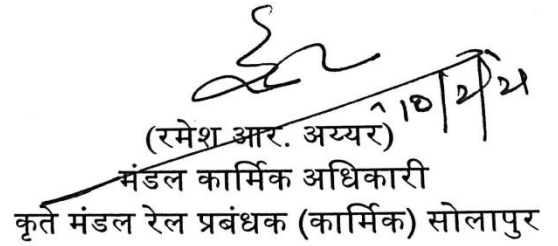 10/2/21
(रमेश आर. अय्यर)
मंडल कार्मिक अधिकारी
कृते मंडल रेल प्रबंधक (कार्मिक) सोलापुर